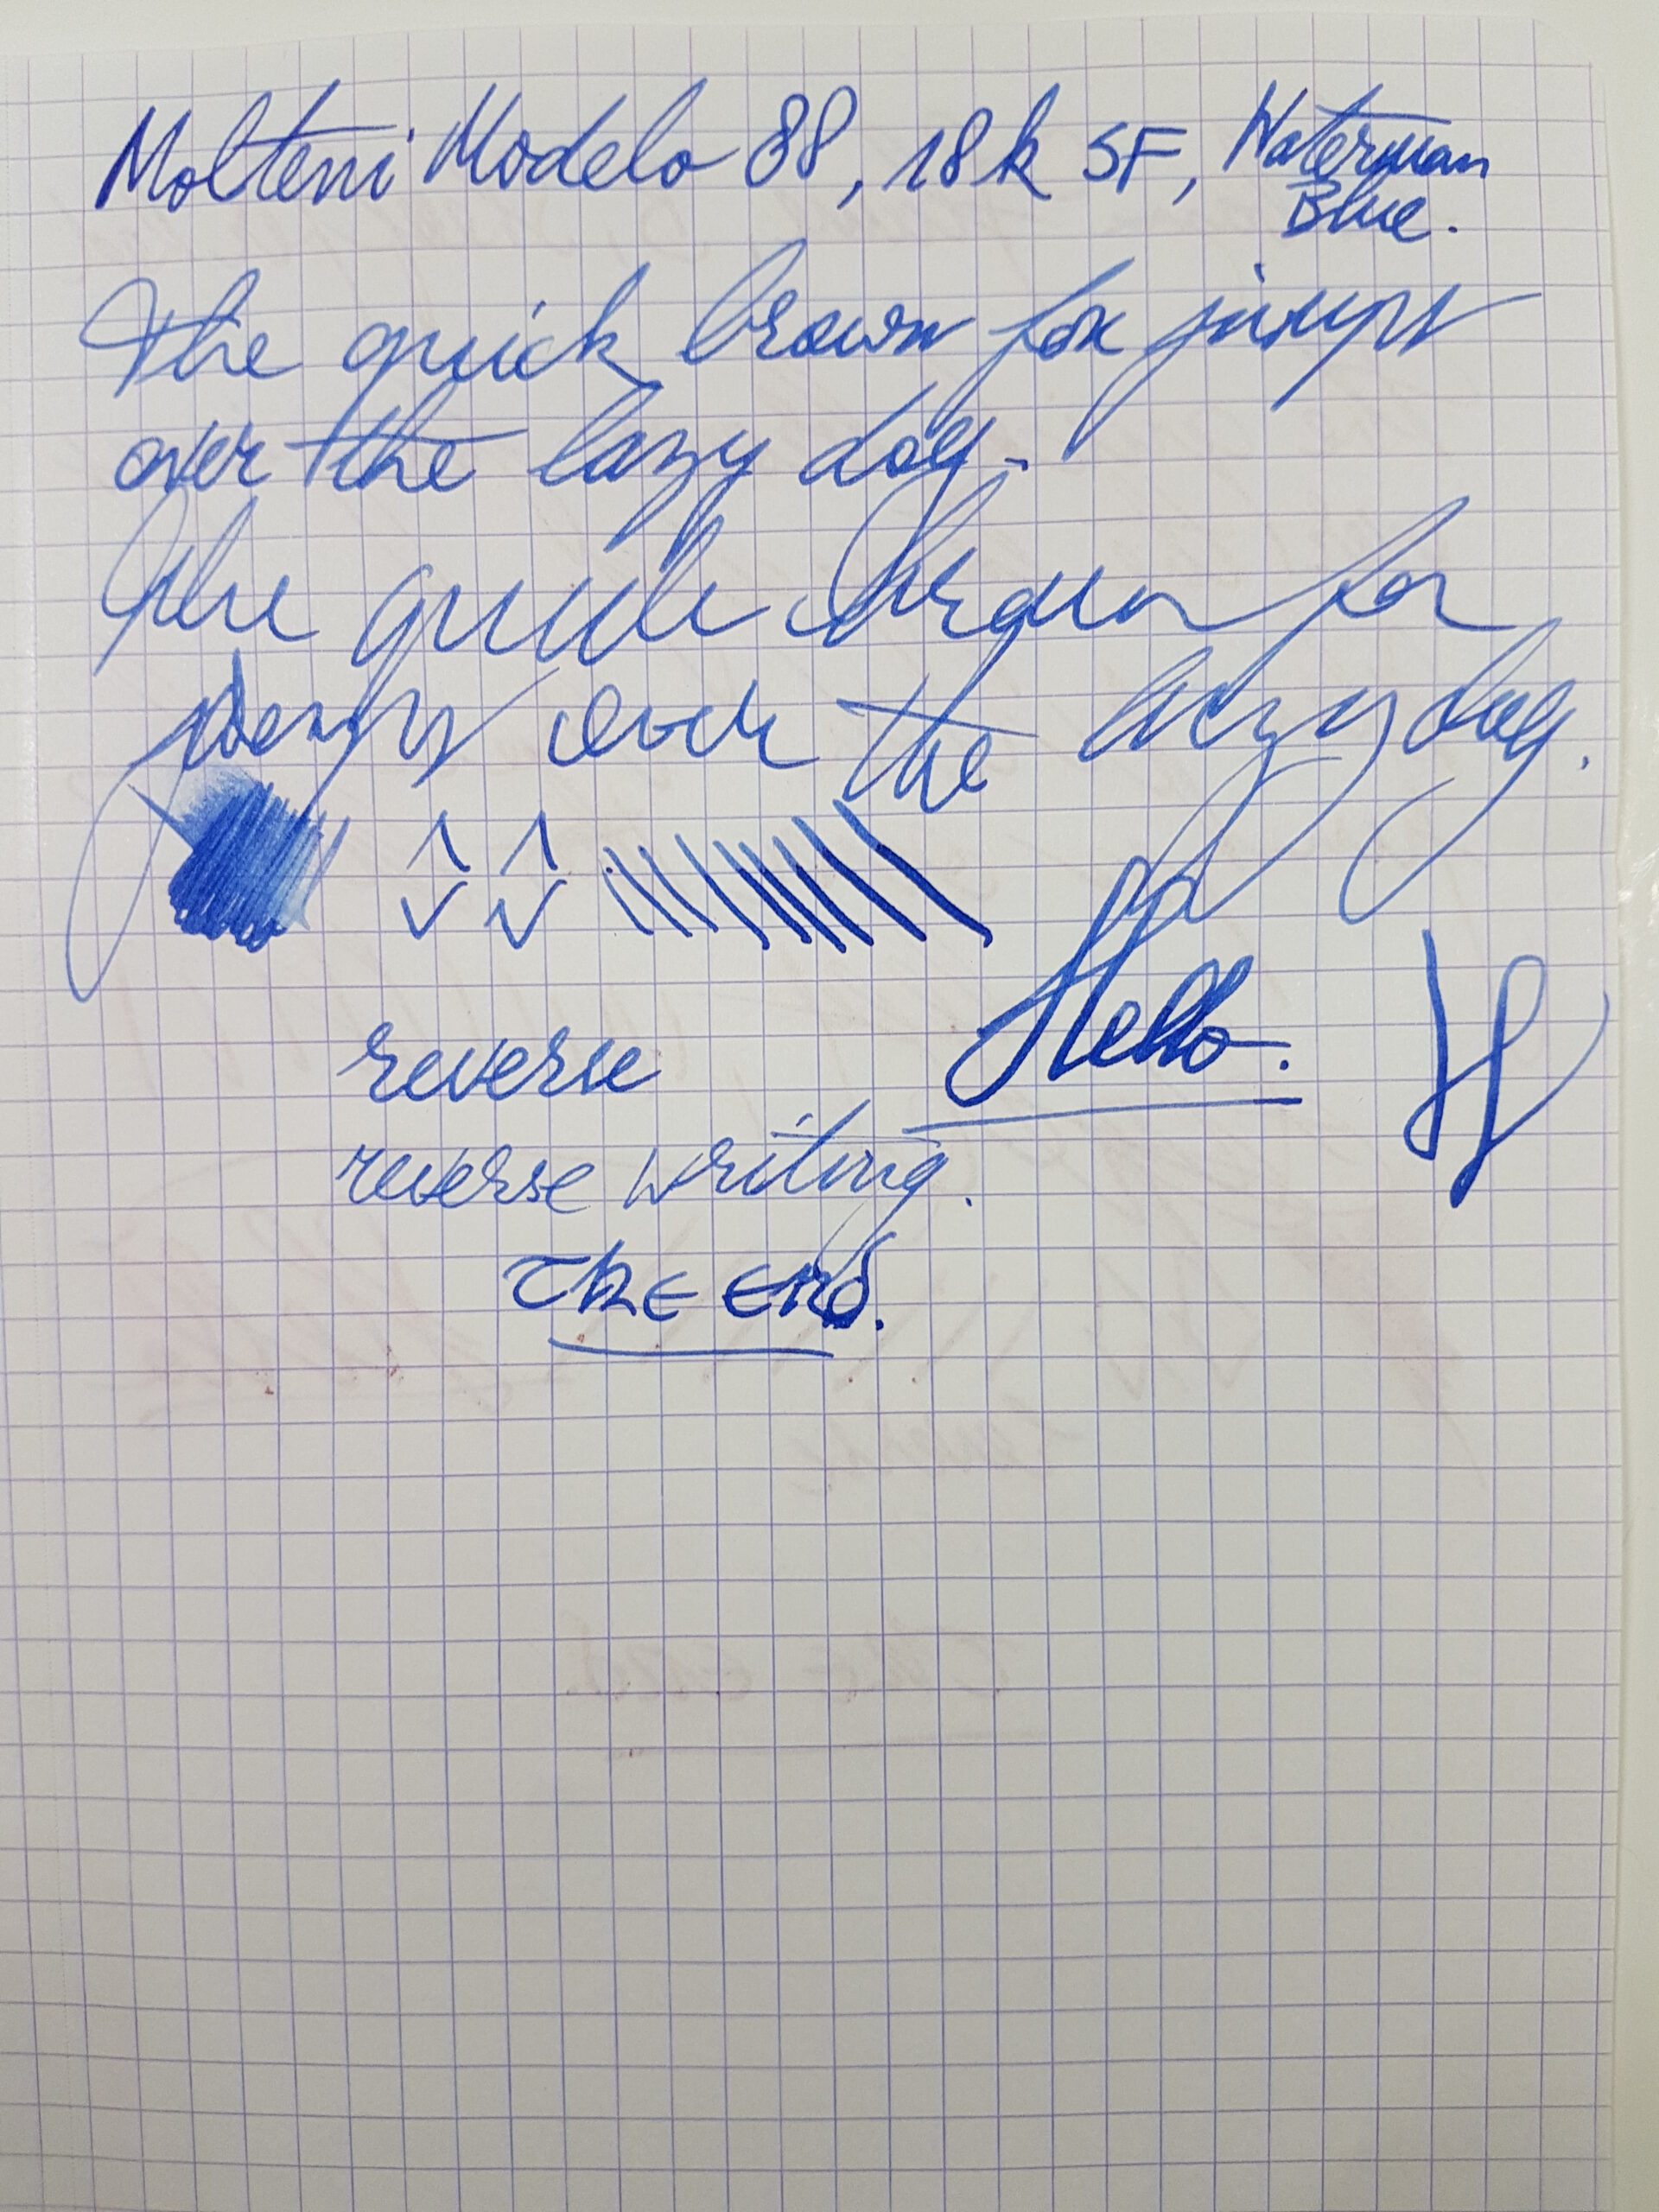 Molteni Modelo 88, 18k SF, Waterman
Blue.
The quick brown fox jumps
over the lazy dog.
The quick brown fox
jumps over the lazy dog.
Hello.
reverse
reverse writing.
The End.